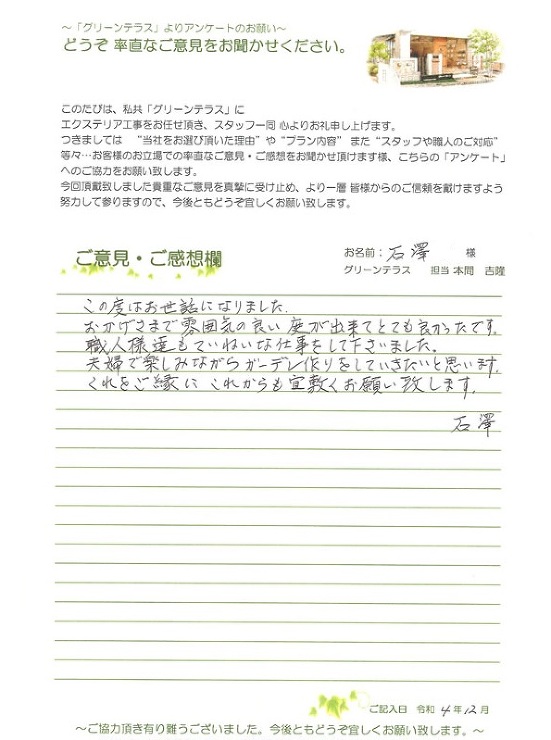 ～「グリーンテラス」よりアンケートのお願い～
どうぞ 率直なご意見をお聞かせください。
このたびは、私共「グリーンテラス」に
エクステリア工事をお任せ頂き、スタッフ一同 心よりお礼申し上げます。
つきましては “当社をお選び頂いた理由” や “プラン内容” また “スタッフや職人のご対応”
等々…お客様のお立場での率直なご意見・ご感想をお聞かせ頂けます様、こちらの「アンケート」
へのご協力をお願い致します。
今回頂戴致しました貴重なご意見を真摯に受け止め、より一層 皆様からのご信頼を戴けますよう
努力して参りますので、今後ともどうぞ宜しくお願い致します。
ご意見・ご感想欄
お名前：石澤 様
グリーンテラス 担当 本間 吉隆
この度はお世話になりました.
おかげさまで雰囲気の良い庭が出来てとても良かったです.
職人様達もていねいな仕事をして下さいました。
夫婦で楽しみながらガーデン作りをしていきたいと思います.
これをご縁に これからも宜敷くお願い致します.
石澤
ご記入日 令和 4年12月
～ご協力頂き有り難うございました。今後ともどうぞ宜しくお願い致します。～